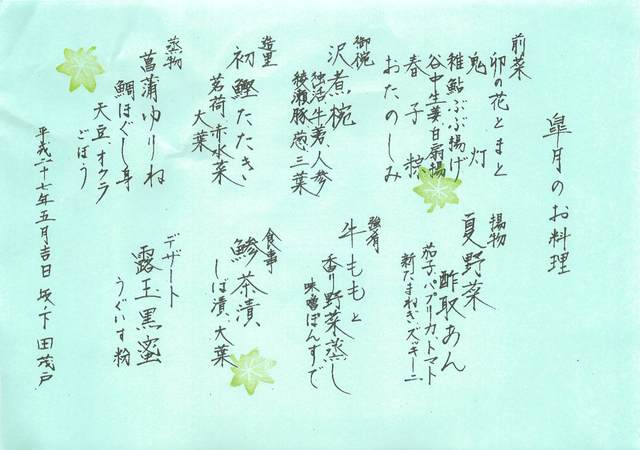 皐月のお料理
前菜
卯の花とまと
鬼灯
稚鮎ぶぶ揚げ
谷中生姜白扇揚
春子粽
おたのしみ
御椀
沢煮椀
独活、牛蒡、人参
綾瀬豚、葱、三葉
造里
初鰹たたき
茗荷、赤水菜
大葉
蒸物
菖蒲ゆりね
鯛ほぐし身
天豆、オクラ
ごぼう
揚物
夏野菜
酢取あん
茄子、パプリカ、トマト
新たまねぎ、ズッキーニ
強肴
牛ももと
香り野菜蒸し
味噌ぽんずで
食事
鯵茶漬
しば漬、大葉
デザート
露玉黒蜜
うぐいす粉
平成二十七年五月吉日 坂ノ下 田茂戸